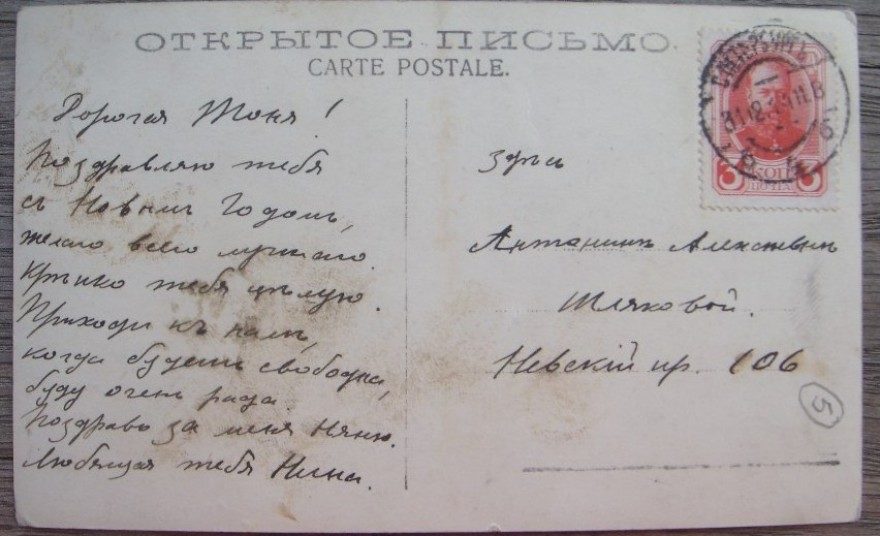 ОТКРЫТОЕ ПИСЬМО.
CARTE POSTALE.
Дорогая Тоня!
Поздравляю тебя
съ Новымъ Годомъ,
желаю всего лучшаго.
Крѣпко тебя цѣлую.
Приходи къ намъ,
когда будешь свободна,
буду очень рада
Поздравь за меня Няню.
Любящая тебя Нина.
31 12
КОП
ПОЧТА
Здѣсь
Антонинѣ Алексѣевнѣ
Шляковой.
Невскій пр. 106
5